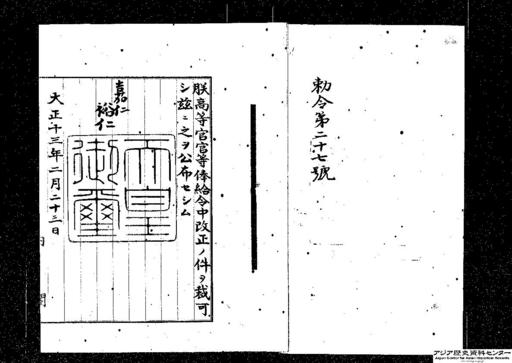 勅令第二十七號
朕高等官官等俸給令中改正ノ件ヲ裁可
シ玆ニ之ヲ公布セシム
嘉仁
裕仁
天皇
御璽
大正十三年二月二十三日
内閣
アジア歴史資料センター
Japan Center for Asian Historical Records